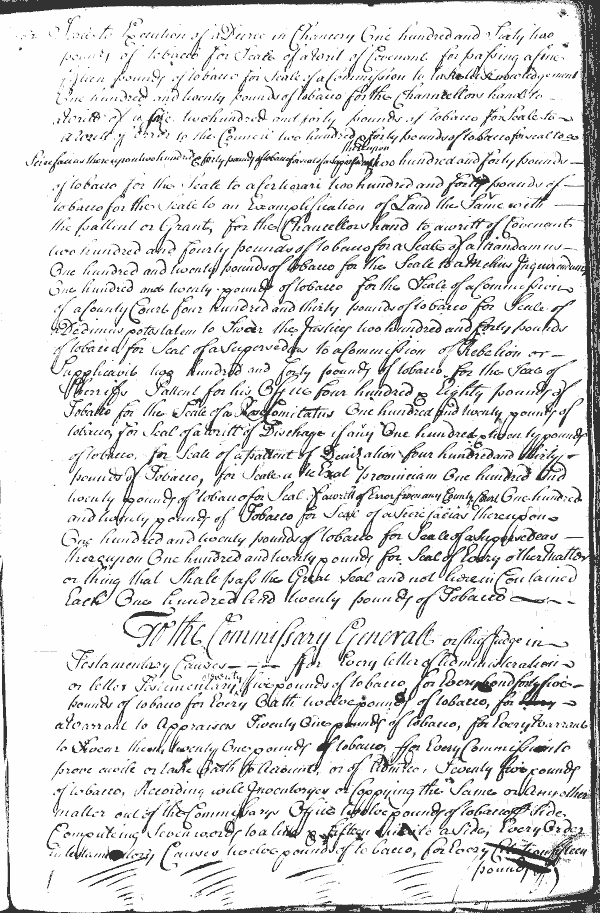 Execution of a Decree in Chancery One hundred and Sixty two
pounds of tobacco for Seale of a writ of Covenant for passing a fine
fifteen pounds of tobacco for Seale of a Commission to take acknowledgement
One hundred and twenty pounds of tobacco for the Chancellors hand to
a writt of two hundred and forty pounds of tobacco for Seale to
a writt of Error to the Council two hundred & forty pounds of tobacco for seal to a
Scire facias thereupon two hundred & forty pounds of tobacco for seal of a Supersedeas thereupon two hundred and forty pounds
of tobacco for the Seale to a Certiorari two hundred and forty pounds of
tobacco for the Seale to an Exemplification of Land the Same with
the pattent or Grant, for the Chancellors hand to a writt of Covenant
two hundred and fourty pounds of tobacco for a Seale of a Mandamus
One hundred and twenty pounds of tobacco for the Seale to a Melius Inquirendum
One hundred and twenty pounds of tobacco for the Seale of a Commission
of a County Court four hundred and thirty pounds of tobacco for Seale of
a Dedimus potestatem to Swear the Justices two hundred and forty pounds
of tobacco for Seal of a Supersedeas to a Commission of Rebelion or
Supplicavit two hundred and forty pounds of tobacco, for the Seale of
Sherriffs Pattent for his Office four hundred & Eighty pounds of
Tobacco for the Seale of a Posse Comitatus One hundred and twenty pounds of
tobacco, for Seal of a writt of Discharge if any One hundred & twenty pounds
of tobacco, for Seale of a pattent of Denization four hundred and thirty
pounds of Tobacco, for Seale a Ne Exeat provinciam One hundred and
twenty pounds of tobacco for Seal of a writt of Error from any County Court One hundred
and twenty pounds of Tobacco for Seal of a Scire facias thereupon
One hundred and twenty pounds of tobacco for Seale of a Supersedeas
thereupon One hundred and twenty pounds for Seal of Every other matter
or thing that Shall pass the Great Seal and not herein Contained
Each One hundred and twenty pounds of Tobacco
To the Commissary Generall or chief Judge in
Testamentary Causes ffor Every letter of Administration
or letter Testamentary seventy five pounds of tobacco, for Every bond forty five
pounds of tobacco for Every Oath twelve pounds of tobacco, for
a Warrant to Appraisers Twenty One pounds of tobacco, for Every warrant
to Swear them, twenty One pounds of tobacco, ffor Every Commission to
prove a wile or take Oath to Accounts, or of Twenty five pounds
of tobacco, Recording wills Inventoryes or Coppying the Same or Any other
matter out of the Commissarys Office twelve pounds of tobacco Side,
Computeing Seven words to a line & fifteen lines to a Side, Every Order
in testamentory Causes twelve pounds of tobacco, for Every Citation fifteen
pounds